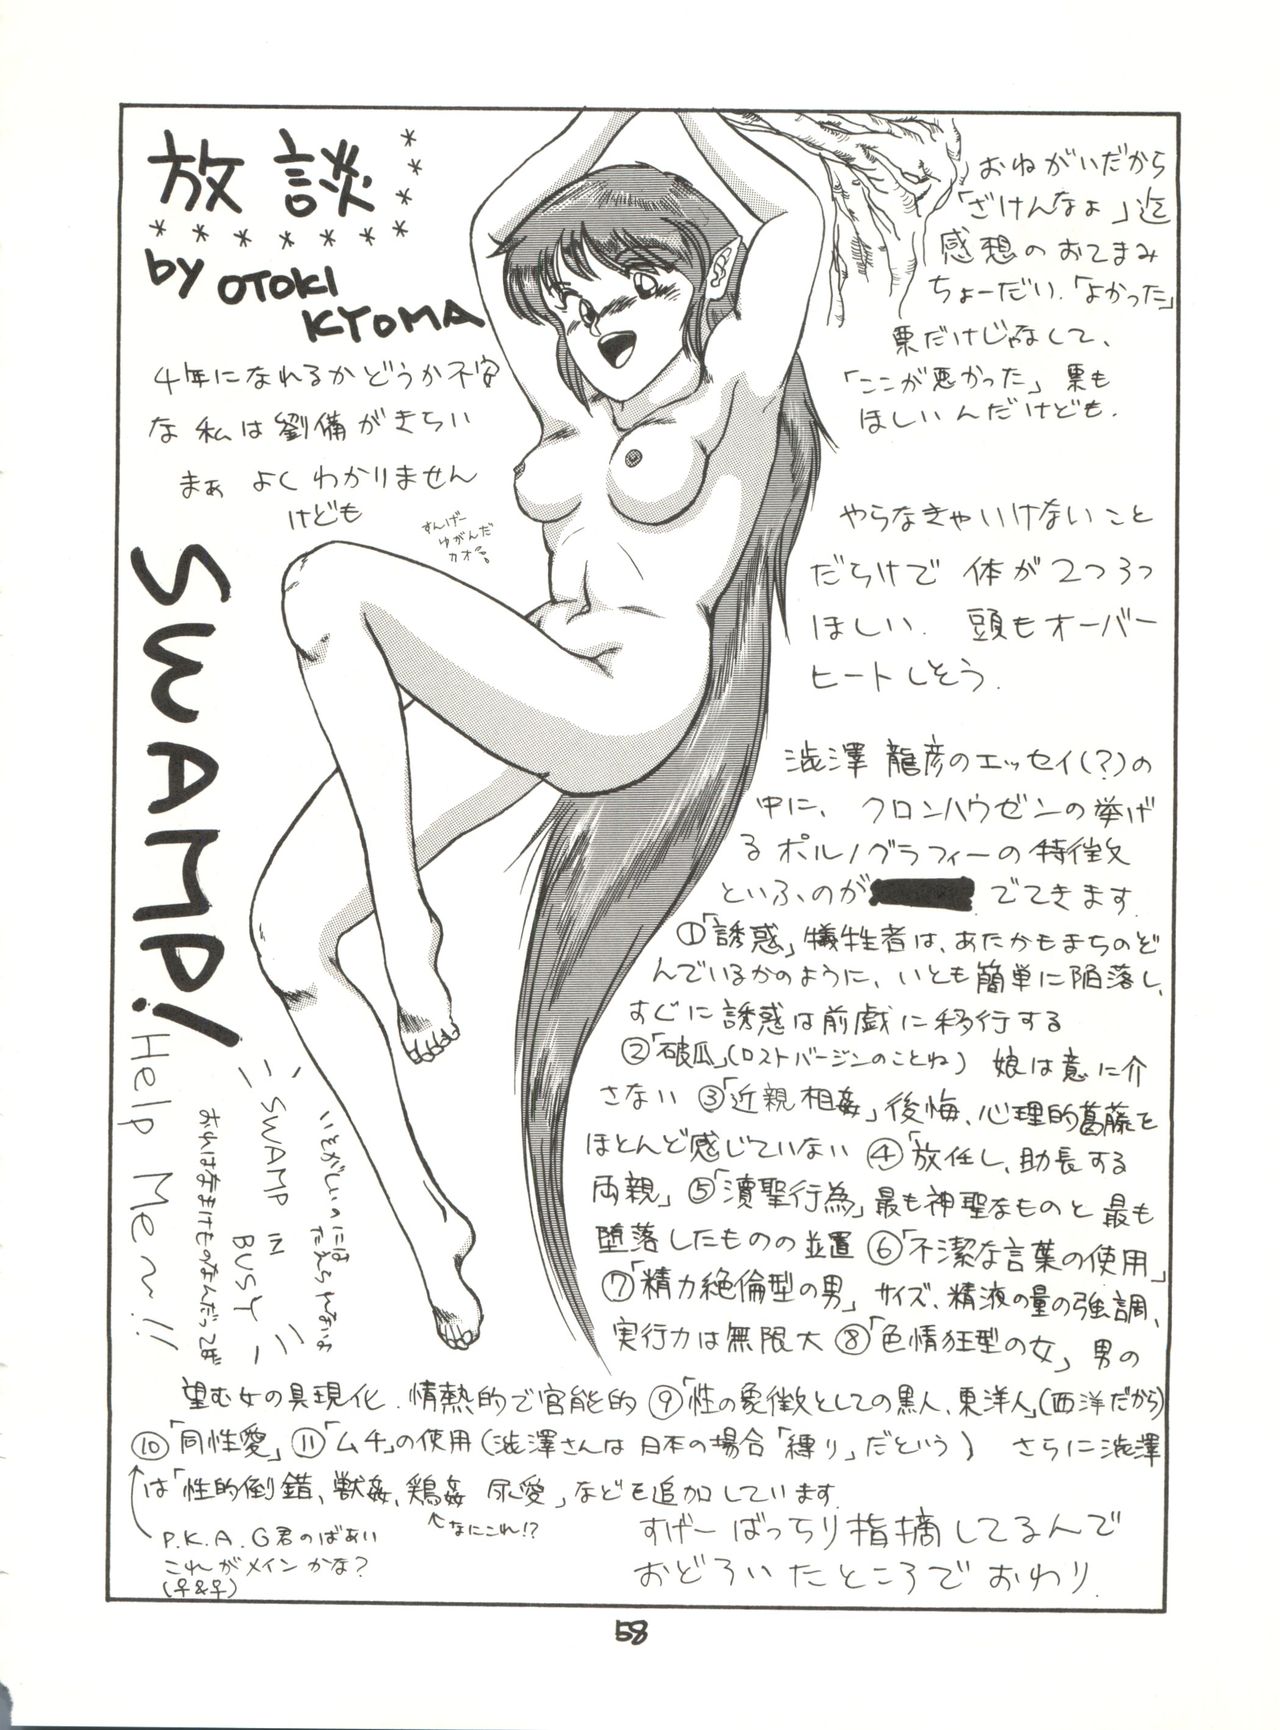 放談
by OTOKI
KYOMA
4年になれるかどうか不安
な私は劉備がきらい
まぁ よくわかりません
けども
すんげー
ゆがんだ
カオ
SWAMP!
Help Me~!!
SWAMP
IN
BUSY
いとがしいのには
たえられないよ
おれはなまけものなんだってば
おねがいだから
「ざけんなよ」迄
感想のおてまみ
ちょーだい.「よかった」
票だけじゃなくて、
「ここが悪かった」票も
ほしいんだけども.
やらなきゃいけないこと
だらけで 体が2つ3つ
ほしい. 頭もオーバー
ヒートしそう.
澁澤 龍彦のエッセイ(?)の
中に、クロンハウゼンの挙げ
るポルノグラフィーの特徴
といふのが でてきます.
①「誘惑」犠牲者は、あたかもまちのぞ
んでいるかのように、いとも簡単に陥落し、
すぐに誘惑は前戯に移行する
②「破瓜」(ロストバージンのことね) 娘は意に介
さない ③「近親相姦」後悔、心理的葛藤を
ほとんど感じていない ④「放任し、助長する
両親」⑤「瀆聖行為」最も神聖なものと最も
堕落したものの並置 ⑥「不潔な言葉の使用」
⑦「精力絶倫型の男」サイズ、精液の量の強調、
実行力は無限大 ⑧「色情狂型の女」男の
望む女の具現化.情熱的で官能的 ⑨「性の象徴としての黒人、東洋人」(西洋だから)
⑩「同性愛」⑪「ムチ」の使用(澁澤さんは日本の場合「縛り」だという) さらに澁澤
は「性的倒錯、獣姦、鶏姦 尿愛」なども追加しています.
なにこれ!?
P.K.A.G君のばあい
これがメインかな?
(♀&♀)
すげーばっちり指摘してるんで
おどろいたところでおわり.
58